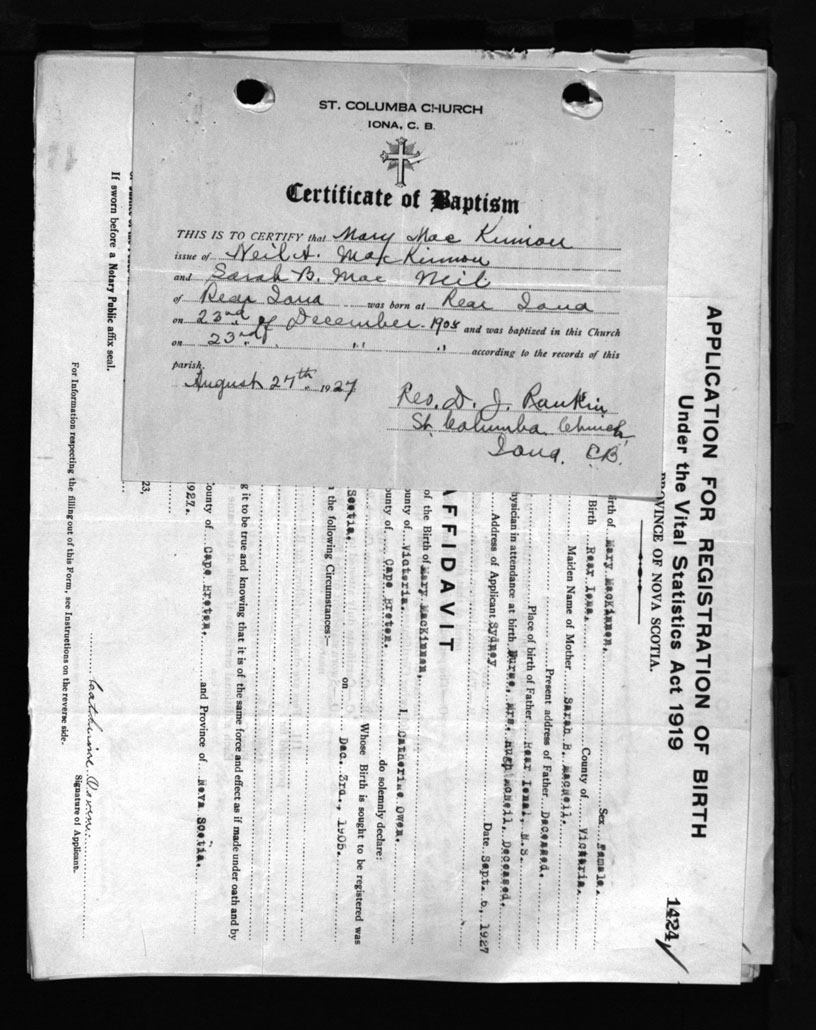 ST. COLUMBA CHURCH
IONA, C. B.
Certificate of Baptism
THIS IS TO CERTIFY that Mary Mac Kinnon
issue of Neil A. MacKinnon
and Sarah B. Mac Neil
of Rear Iona was born at Rear Iona
on 23rd of December 1905 and was baptized in this Church
on 23rd " " " according to the records of this
parish.
August 27th 1927
Rev. D. J. Rankin
St. Columba Church
Iona, C.B.
APPLICATION FOR REGISTRATION OF BIRTH
Under the Vital Statistics Act 1919
PROVINCE OF NOVA SCOTIA.
1424
irth of Mary MacKinnon. Sex Female.
Birth Rear Iona. County of Victoria.
Maiden Name of Mother Sarah B. MacNeil.
Present address of Father Deceased.
Place of birth of Father Rear Iona, N.S.
ysician in attendance at birth Nurse, Mrs. Hugh McNeil, Deceased.
Address of Applicant Sydney Date Sept. 6, 1927
AFFIDAVIT
of the Birth of Mary MacKinnon,
ounty of Victoria. I, Catherine Owen.
ounty of Cape Breton. do solemnly declare:
Whose Birth is sought to be registered was
Scotia. on Dec. 3rd., 1905.
the following Circumstances:—
g it to be true and knowing that it is of the same force and effect as if made under oath and by
ounty of Cape Breton. and Province of Nova Scotia.
1927.
23,
Catherine Owen.
Signature of Applicant.
If sworn before a Notary Public affix seal.
For Information respecting the filling out of this Form, see Instructions on the reverse side.